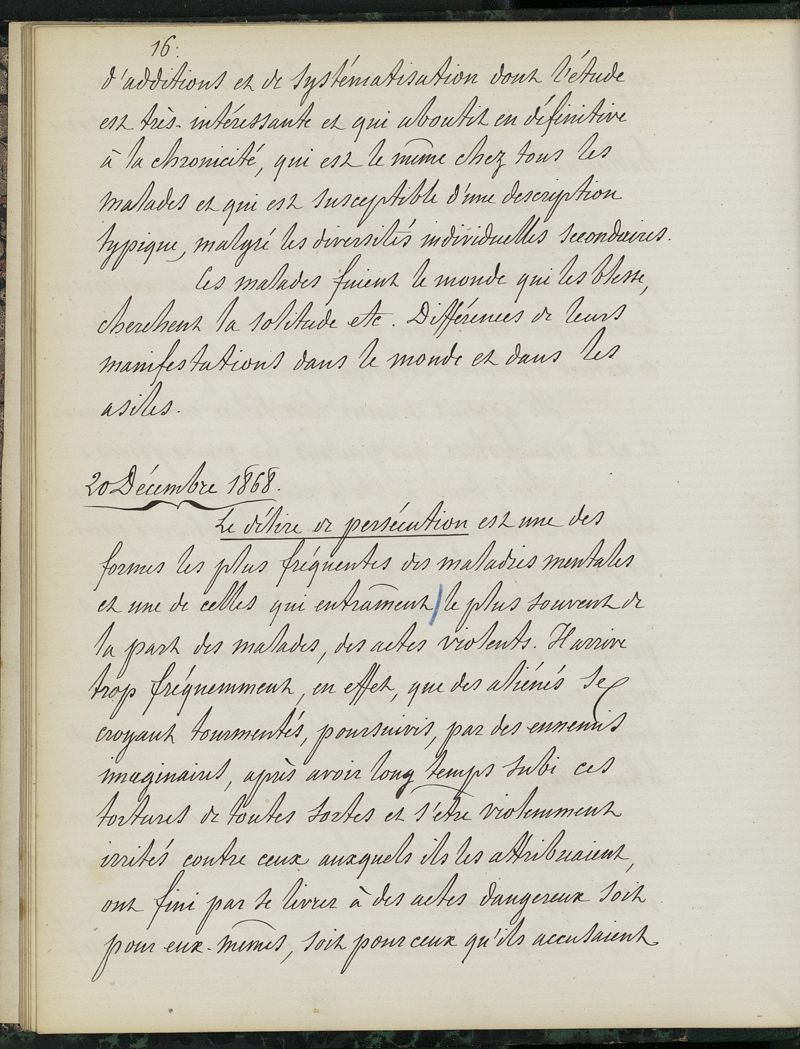 16.
d'additions et de systématisation dont l'étude
est très-intéressante et qui aboutit en définitive
à la chronicité, qui est le même chez tous les
malades et qui est susceptible d'une description
typique, malgré les diversités individuelles secondaires.
Ces malades fuient le monde qui les blesse,
cherchent la solitude etc. Différences de leurs
manifestations dans le monde et dans les
asiles.
20 Décembre 1868.
Le délire de persécution est une des
formes les plus fréquentes des maladies mentales
et une de celles qui entraînent le plus souvent de
la part des malades, des actes violents. Il arrive
trop fréquemment, en effet, que des aliénés se
croyant tourmentés, poursuivis, par des ennemis
imaginaires, après avoir long temps subi ces
tortures de toutes sortes et s'être violemment
irrités contre ceux auxquels ils les attribuaient,
ont fini par se livrer à des actes dangereux soit
pour eux-mêmes, soit pour ceux qu'ils accusaient